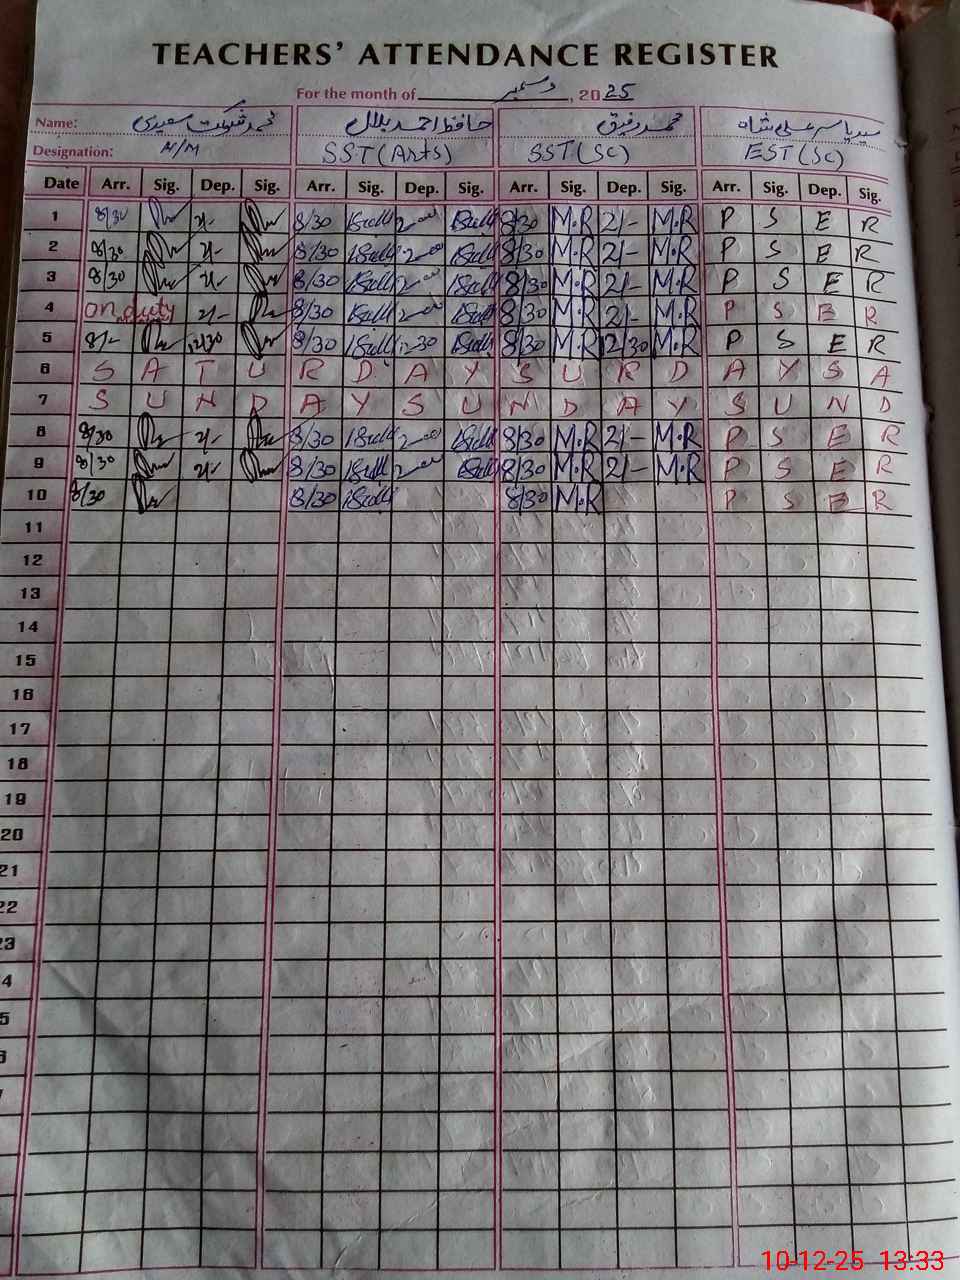 TEACHERS' ATTENDANCE REGISTER
For the month of دسمبر, 2025
Name: محمد شوکت سعیدی حافظ احمد بلال محمد رفیق سید یاسر علی شاہ
Designation: H/M SST (Arts) SST (Sc) EST (Sc)
Date Arr. Sig. Dep. Sig. Arr. Sig. Dep. Sig. Arr. Sig. Dep. Sig. Arr. Sig. Dep. Sig.
1 8/30 2/- 8/30 2 8/30 M.R 2/- M.R P S E R
2 8/30 2/- 8/30 2 8/30 M.R 2/- M.R P S E R
3 8/30 2/- 8/30 2 8/30 M.R 2/- M.R P S E R
4 on duty 2/- 8/30 2 8/30 M.R 2/- M.R P S E R
5 8/- 12/30 8/30 12 30 8/30 M.R 12/30 M.R P S E R
6 S A T U R D A Y S U R D A Y S A
7 S U N D A Y S U N D A Y S U N D
8 8/30 2/- 8/30 2 8/30 M.R 2/- M.R P S E R
9 8/30 2/- 8/30 2 8/30 M.R 2/- M.R P S E R
10 8/30 8/30 8/30 M.R P S E R
11
12
13
14
15
16
17
18
19
20
21
22
23
4
5
6
7
10-12-25 13:33